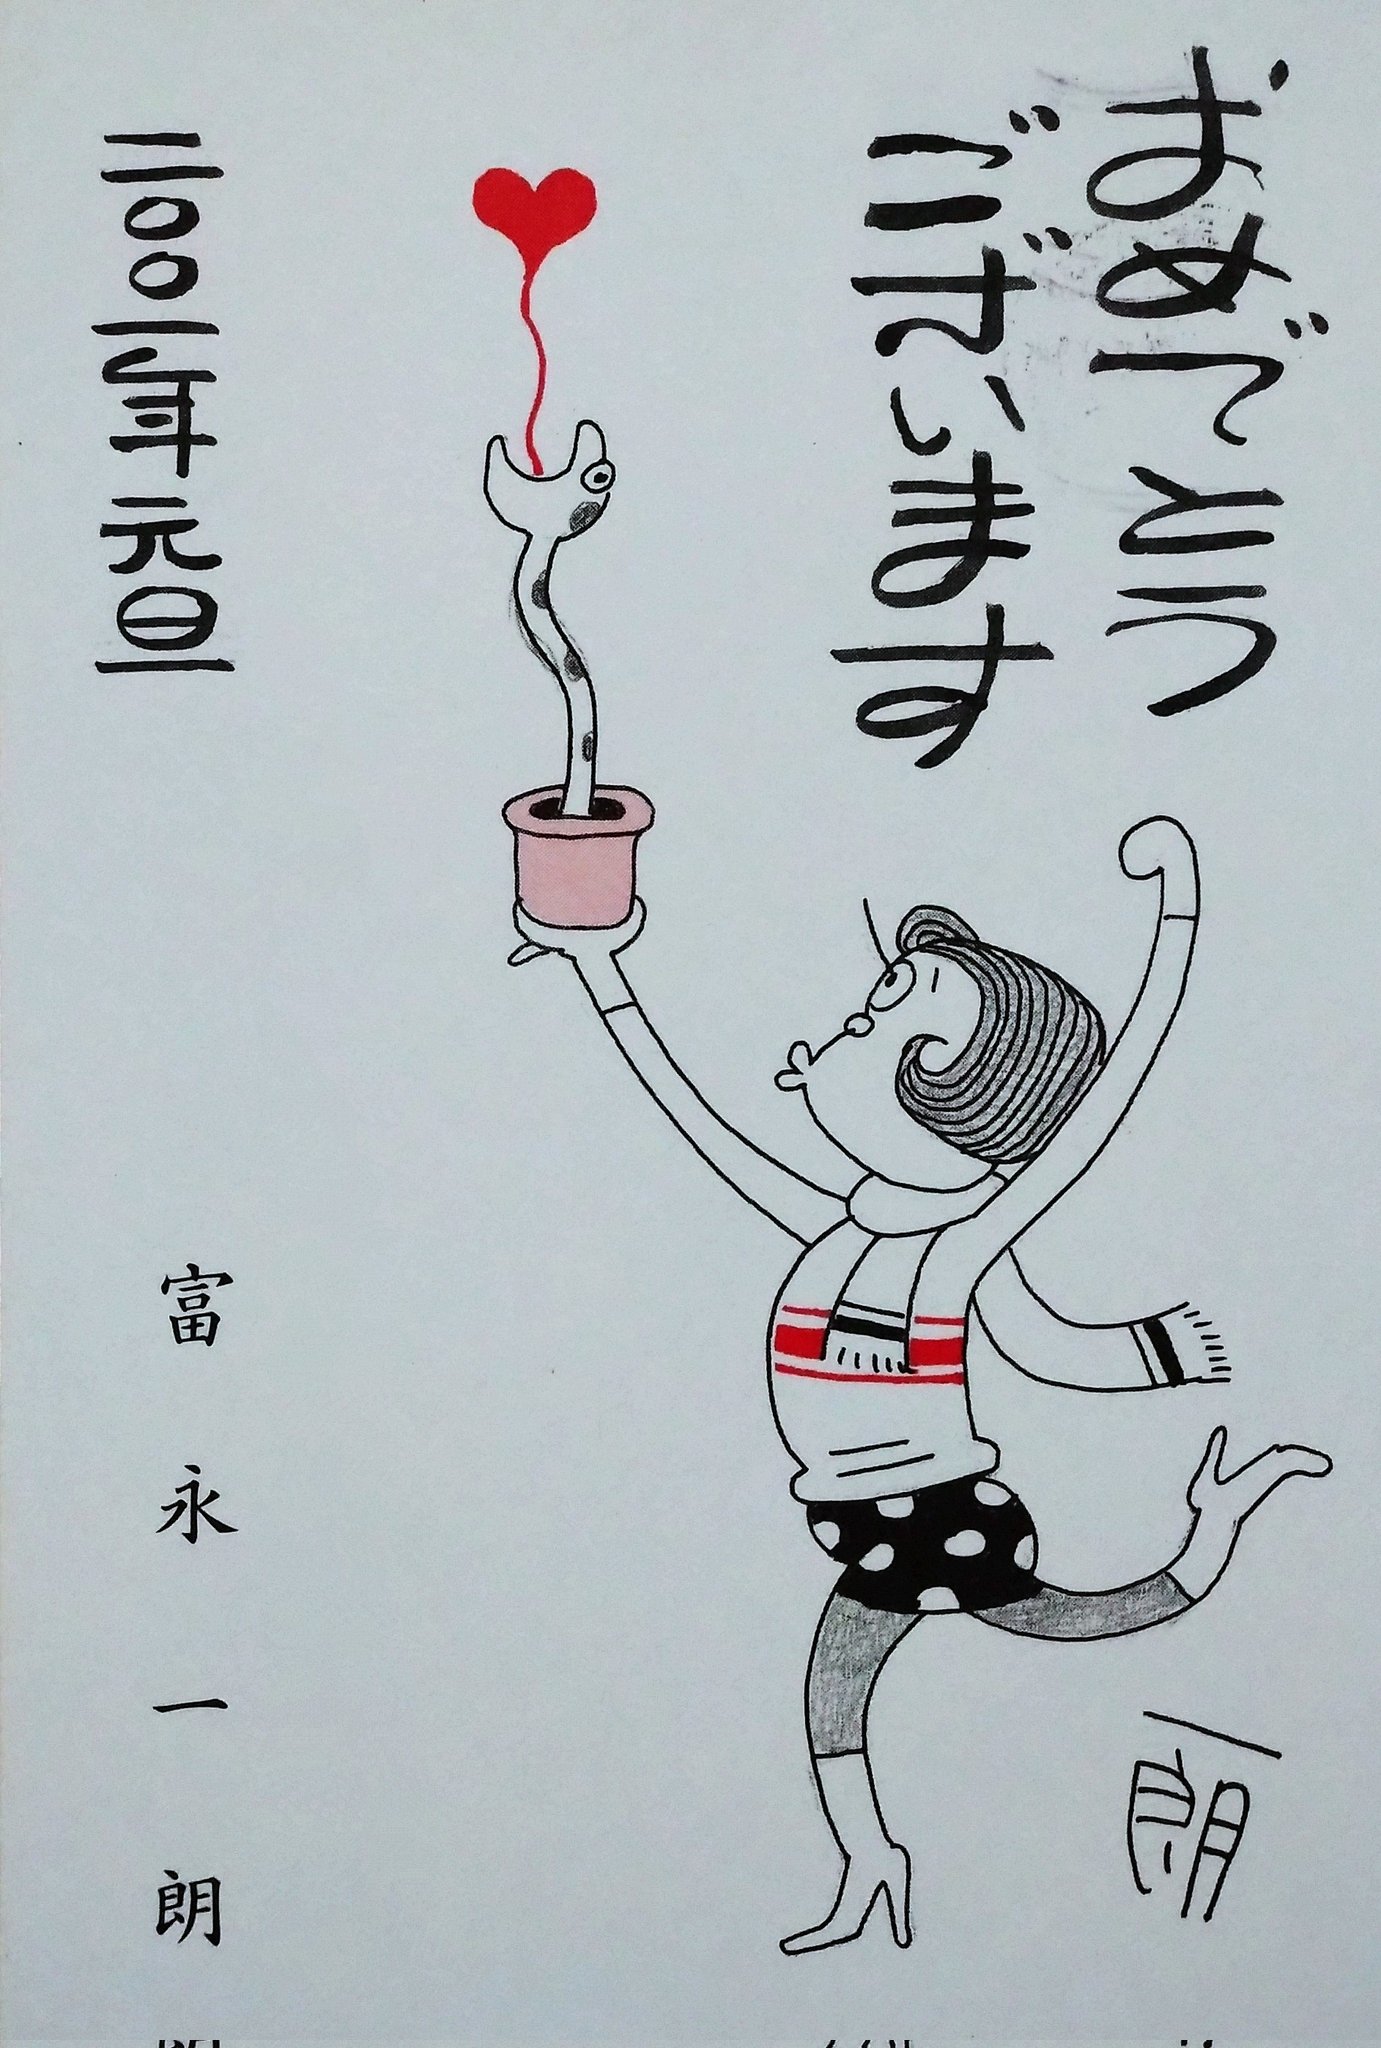 おめでとう
ございます
一朗
二〇〇一年元旦
富永一朗